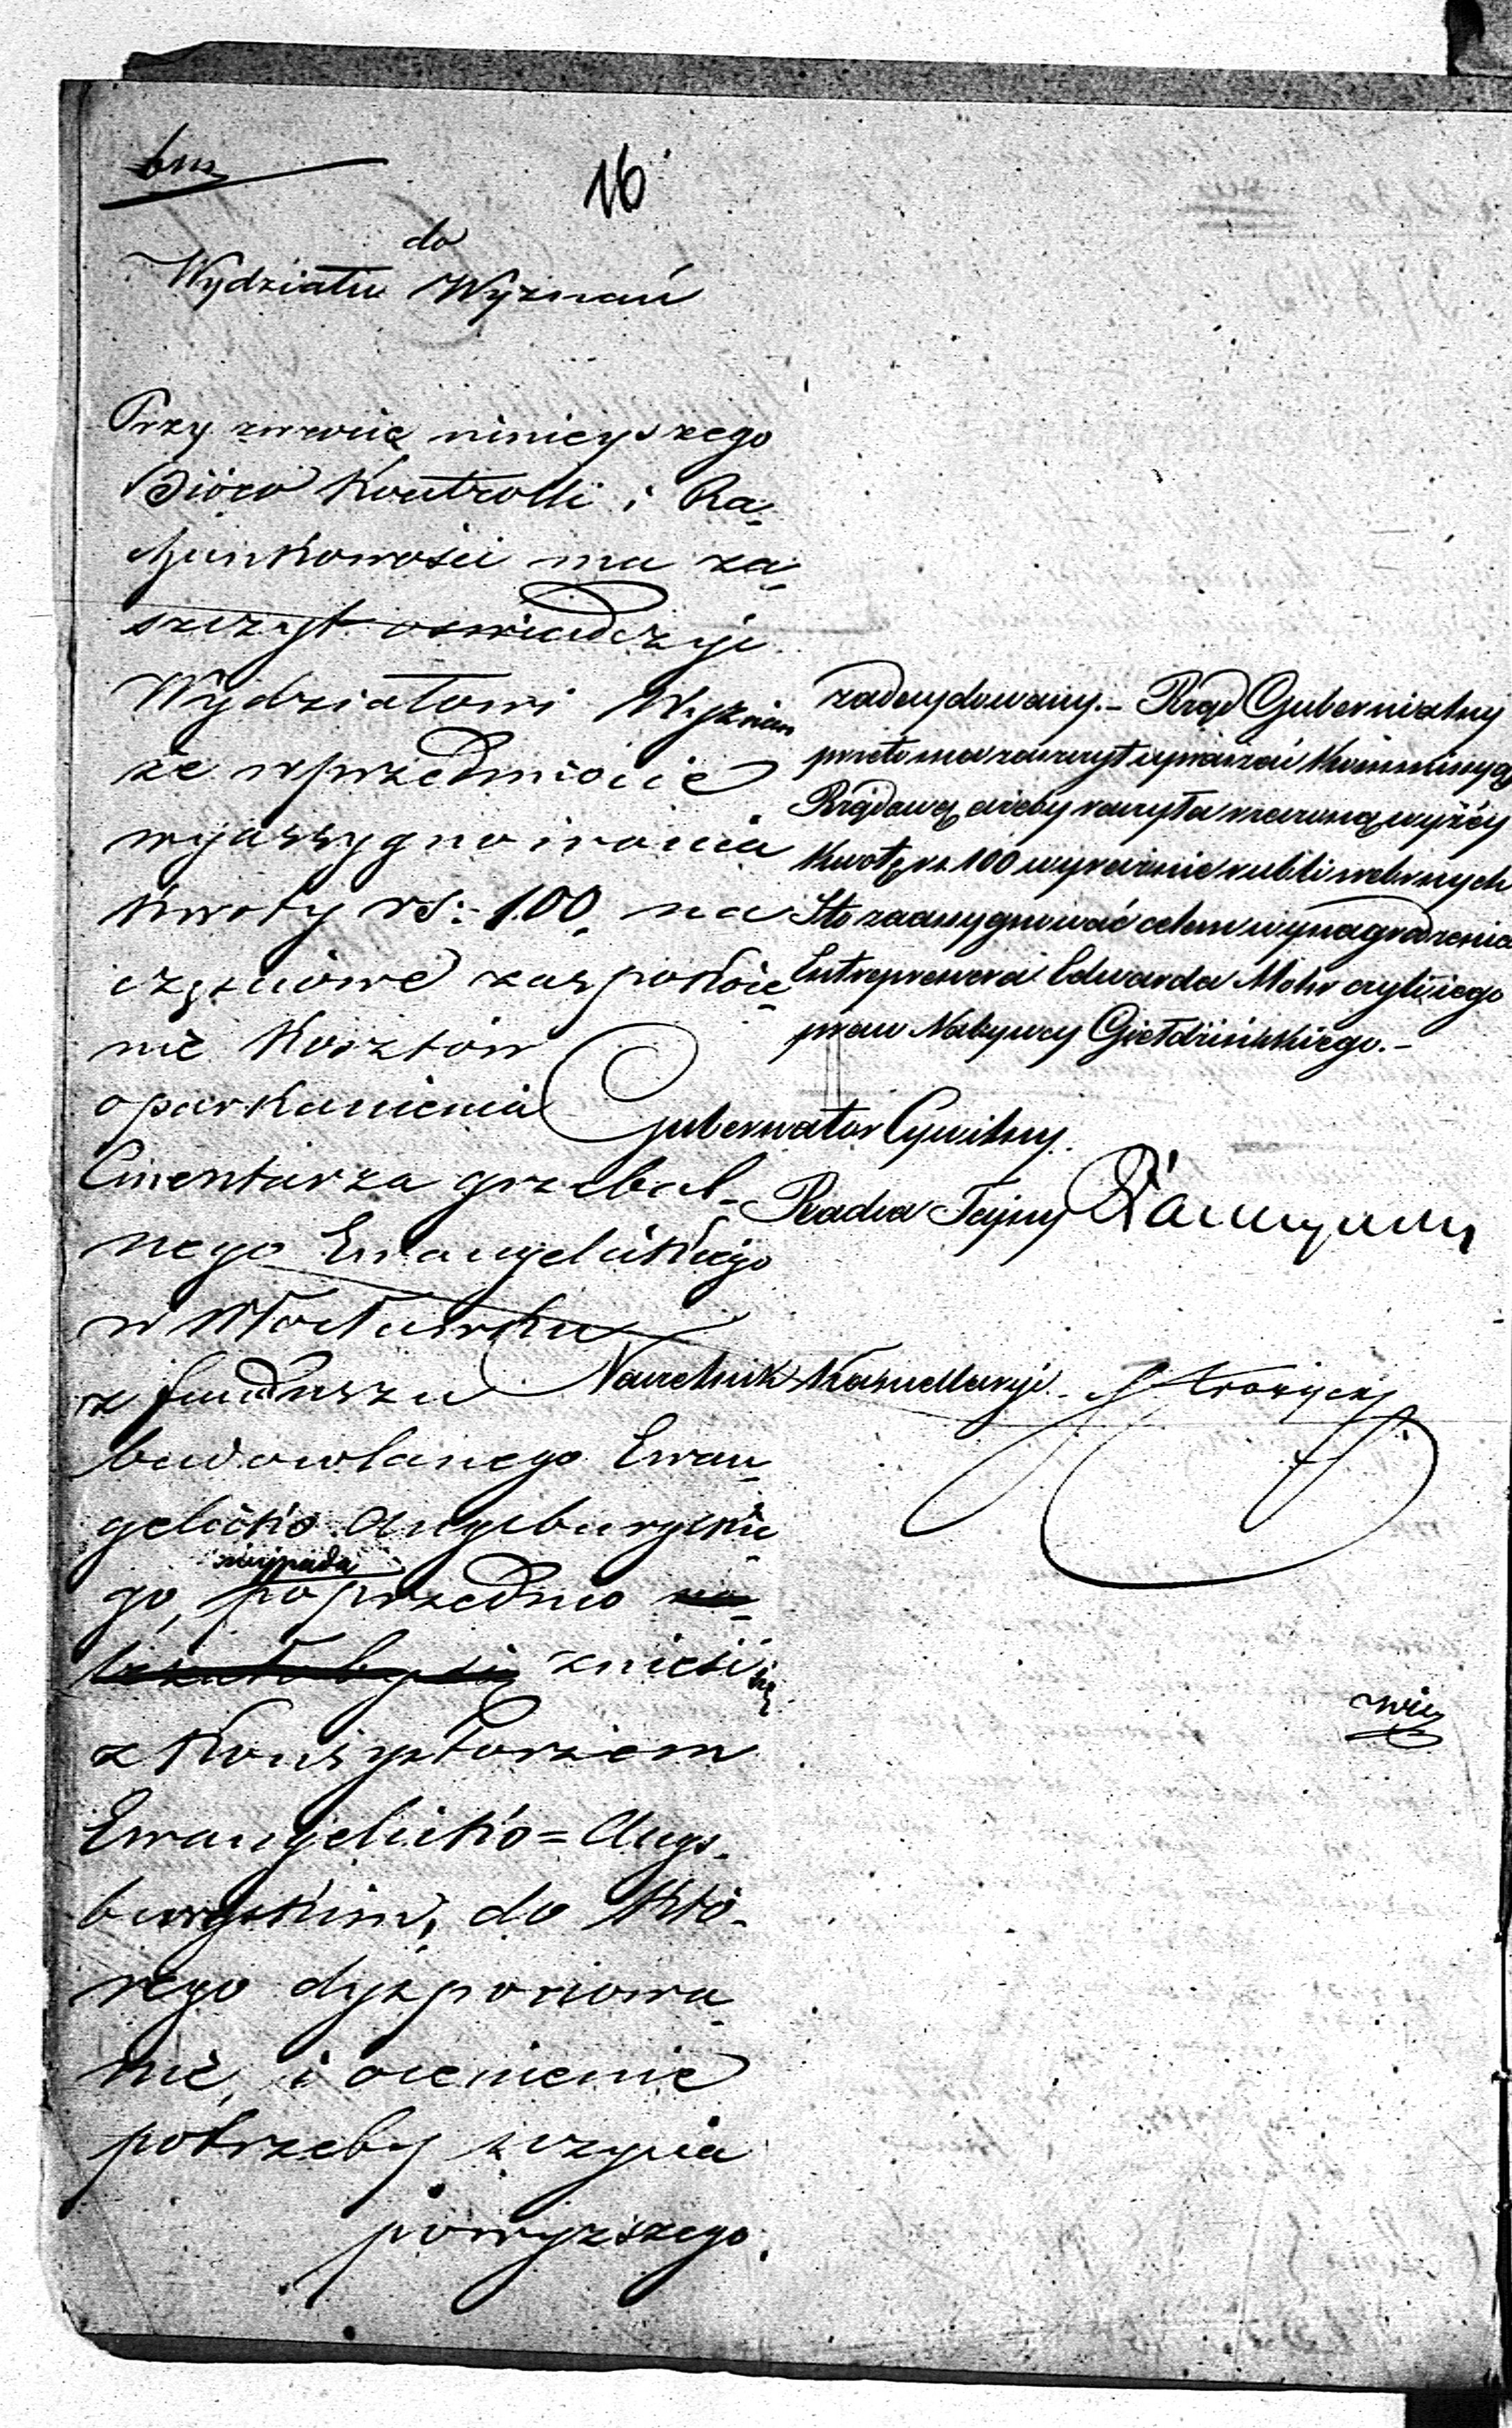 16
do
Wydziału Wyznań
Przy zwrocie ninieyszego
Bióro Kontrolli i Ra-
chunkowości ma za-
szczyt oświadczyć
Wydziałowi Wyznań
że w przedmiocie
wyassygnowania
kwoty rs: 100 na
częściowe zaspokoie-
nie kosztów
oparkanienia
Cmentarza grzebal-
nego Ewangelickiego
w Włocławku
z funduszu
budowlanego Ewan-
gelicko Augsburgskie-
go, wypada poprzednio
znieść się
z Konsystorzem
Ewangelicko=Augs-
burgskim, do któ-
rego dysponowa-
nie i ocenienie
potrzeby użycia
powyższego.
zadecydowany.- Rząd Gubernialny
przeto ma zaszczyt upraszać Kommissyą
Rządową, ażeby raczyła rzeczoną wyżéy
kwotę rs. 100 wyraźnie rubli srebrnych
Sto zaasygnować celem wynagrodzenia
Entreprenera Edwarda Mohr czyli jego
praw Nabywcy Giełdzińskiego.-
Gubernator Cywilny
Radca Tajny
Naczelnik Kancellaryi